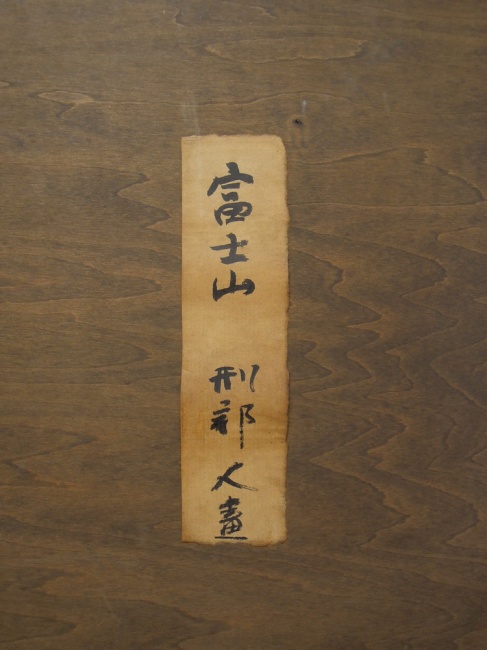 富士山 刑部人畫